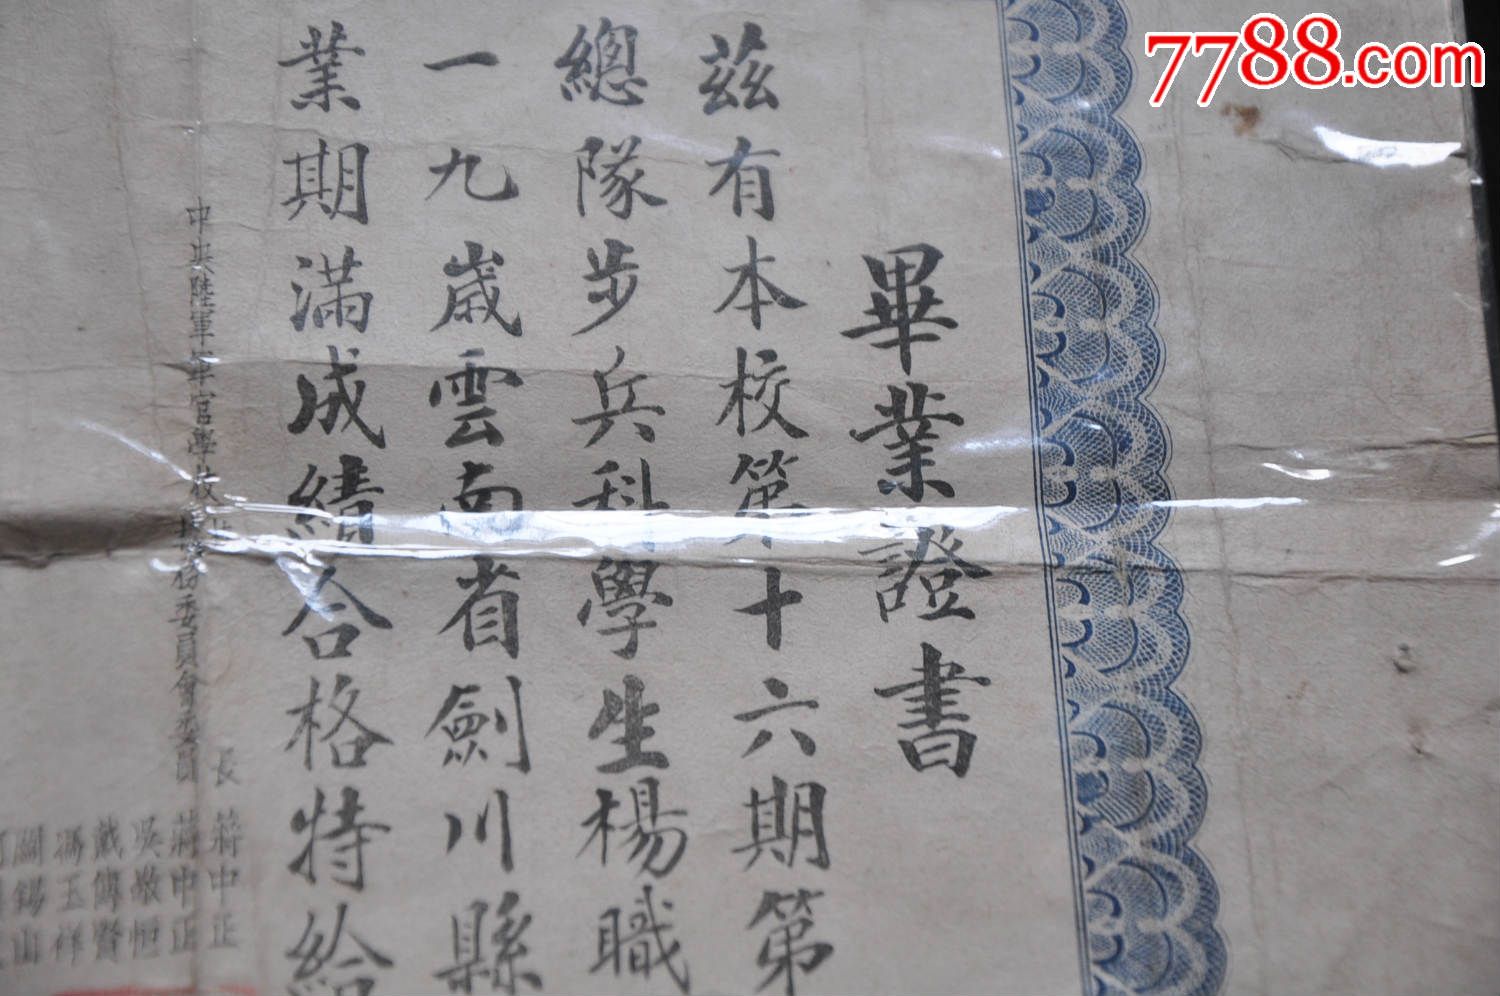 7788.com
畢業證書
茲有本校第十六期第
總隊步兵科學生楊職
一九歲雲南省劍川縣
業期滿成績合格特給
長 蔣中正
中央陸軍軍官學校 委員會委員 蔣中正
吳敬恒
戴傳賢
馮玉祥
閻錫山